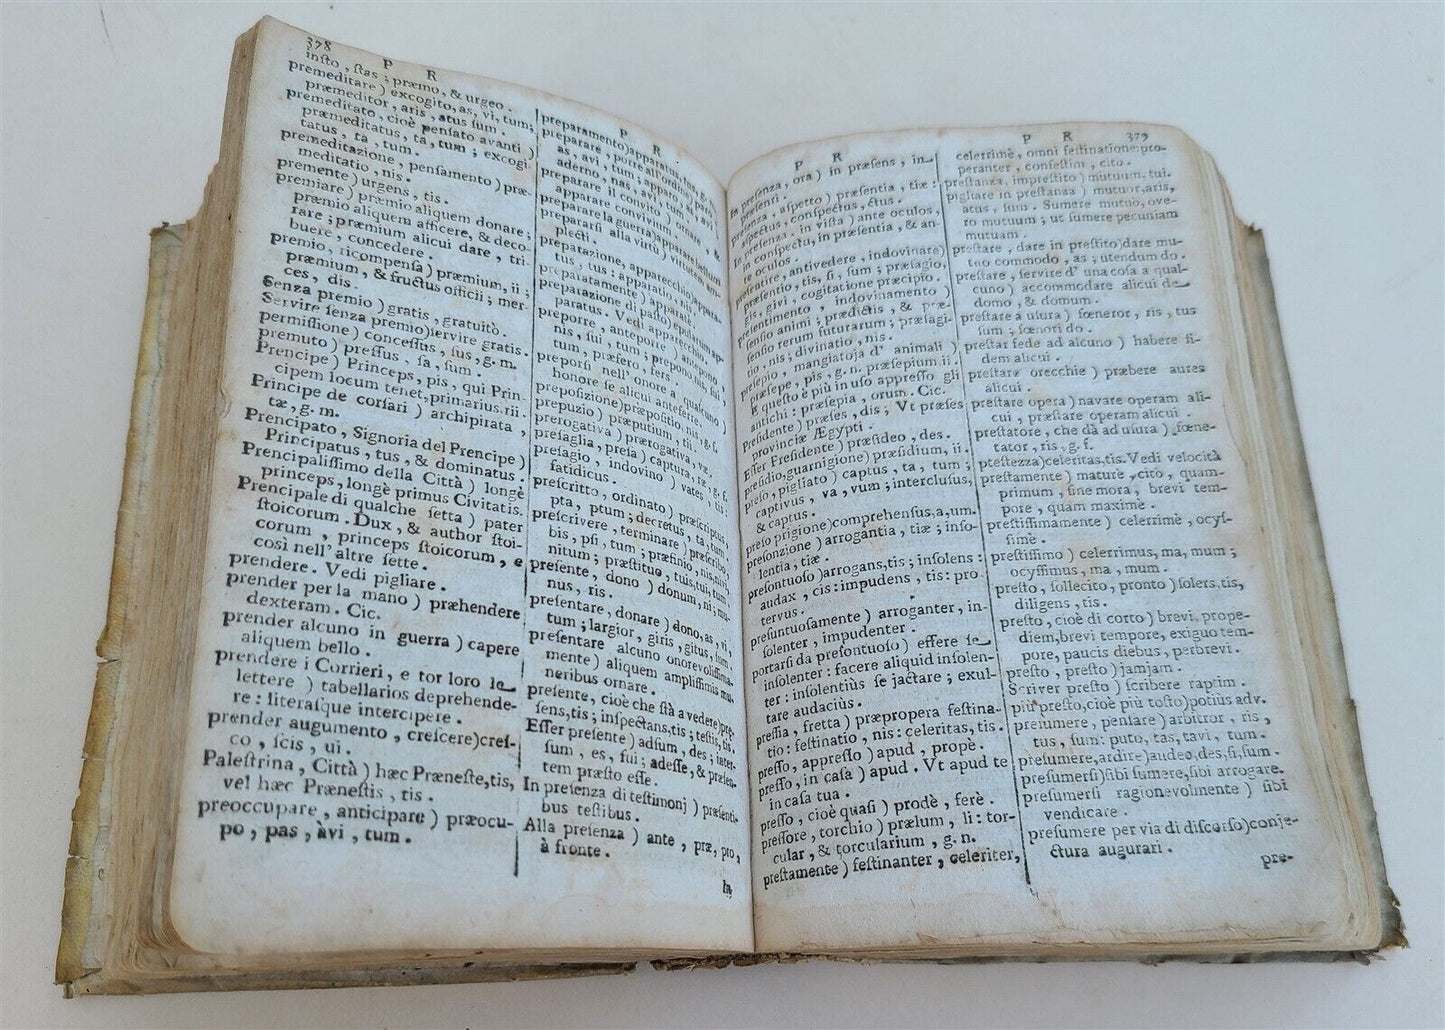 378
P R
inſto, ſtas; præmo, & urgeo.
premeditare) excogito, as, vi, tum;
præmeditor, aris, atus ſum.
premeditato, cioè penſato avanti)
præmeditatus, ta, tum; excogi
tatus, ta, tum.
premeditazione, penſamento) præ-
meditatio, nis.
premente) urgens, tis.
premiare) præmio aliquem donare;
præmio aliquem afficere, & deco-
rare; præmium alicui dare, tri-
buere, concedere.
premio, ricompenſa) præmium, ii;
præmium, & fructus officii; mer-
ces, dis.
Senza premio) gratis, gratuitò.
Servire ſenza premio) ſervire gratis.
permiſſione) conceſſus, ſus, g. m.
premuto) preſſus, ſa, ſum.
Prencipe) Princeps, pis, qui Prin-
cipem locum tenet, primarius, rii.
Principe de corſari) archipirata,
tæ, g. m.
Prencipato, Signoria del Prencipe)
Principatus, tus, & dominatus.
Prencipaliſſimo della Città) longè
princeps, longè primus Civitatis.
Prencipale di qualche ſetta) pater
ſtoicorum. Dux, & author ſtoi-
corum, princeps ſtoicorum, e
così nell' altre ſette.
prendere. Vedi pigliare.
prender per la mano) præhendere
dexteram. Cic.
prender alcuno in guerra) capere
aliquem bello.
prendere i Corrieri, e tor loro le
lettere) tabellarios deprehende-
re: literaſque intercipere.
prender augumento, creſcere) creſ-
co, ſcis, ui.
Paleſtrina, Città) hæc Præneſte, tis,
vel hæc Præneſtis, tis.
preoccupare, anticipare) præocu-
po, pas, àvi, tum.
P R
preparamento) apparatus, tus, g. m.
preparare, porre all'ordine) paro,
as, avi, tum; apparo, as;
aderno, nas, avi, tum.
preparare il convito) ornare, &
apparare convivium.
preparare la guerra) apparare bellum
prepararſi alla virtù) virtutem am-
plecti.
preparazione, apparecchio) appara-
tus, tus: apparatio, nis.
preparatamente) apparatè.
preparazione di paſto) epularum ap-
paratus. Vedi apparecchio.
preporre, anteporre) antepono,
nis, ſui, tum; prepono, nis, ſui,
tum, præfero, fers.
preporſi nell' onore a qualcuno)
honore ſe alicui anteferre.
prepoſizione) præpoſitio, nis, g. f.
prepuzio) præputium, tii.
prerogativa) prærogativa, væ.
preſaglia, preia) captura, ræ, g. f.
preſagio, indovino) vates, tis:
fatidicus.
preſcritto, ordinato) præſcriptus,
pta, ptum; decretus, ta, tum.
preſcrivere, terminare) præſcribo,
bis, pſi, tum; præfinio, nis, nivi,
nitum; præſtituo, tuis, tui, tum.
preſente, dono) donum, ni; mu-
nus, ris.
preſentare, donare) dono, as, vi,
tum; largior, giris, gitus, ſum.
preſentare alcuno onorevoliſſima-
mente) aliquem ampliſſimis mu-
neribus ornare.
preſente, cioè che ſtà a vedere) præ-
ſens, tis; inſpectans, tis; teſtis, tis.
Eſſer preſente) adſum, des; inter-
ſum, es, fui; adeſſe, & præſen-
tem præſto eſſe.
In preſenza di teſtimonj) præſenti-
bus teſtibus.
Alla preſenza) ante, præ, pro,
à fronte.
In
P R
In preſenza, ora) in præſens, in
præſenti.
Preſenza, aſpetto) præſentia, tiæ:
aſpectus, conſpectus, ctus.
In preſenza. in viſta) ante oculos,
in conſpectu, in præſentia, & an-
te oculos.
preſentire, antivedere, indovinare)
præſentio, tis, ſi, ſum; præſagio,
gis, givi, cogitatione præcipio.
preſentimento, indovinamento)
ſenſio animi; prædictis, & præ-
ſenſio rerum futurarum; præſagi-
tio, nis; divinatio, nis.
preſepio, mangiatoja d' animali)
præſepe, pis, g. n. præſepium ii.
E queſto è più in uſo appreſſo gli
antichi: præſepia, orum. Cic.
Preſidente) præſes, dis; Vt præſes
provinciæ Ægypti.
Eſſer Preſidente) præſideo, des.
preſidio, guarnigione) præſidium, ii.
preſo, pigliato) captus, ta, tum;
captivus, va, vum; intercluſus,
& captus.
preſo prigione) comprehenſus, a, um.
preſonzione) arrogantia, tiæ; inſo-
lentia, tiæ.
preſontuoſo) arrogans, tis; inſolens:
audax, cis: impudens, tis: pro
tervus.
preſuntuoſamente) arroganter, in-
ſolenter, impudenter.
portarſi da preſontuoſo) efferre ſe
inſolenter: facere aliquid inſolen-
ter: inſolentiùs ſe jactare; exul-
tare audaciùs.
preſſia, fretta) præpropera feſtina-
tio: feſtinatio, nis: celeritas, tis.
preſſo, appreſſo) apud, propè.
preſſo, in caſa) apud. Vt apud te
in caſa tua.
preſſo, cioè quaſi) prodè, ferè.
preſſore, torchio) prælum, li: tor-
cular, & torcularium, g. n.
preſtamente) feſtinanter, celeriter,
P R 379
celerrimè, omni feſtinatione: pro-
peranter, confeſtim, cito.
preſtanza, impreſtito) mutuum, tui.
pigliare in preſtanza) mutuor, aris,
atus, ſum. Sumere mutuo, ove-
ro mutuum; ut ſumere pecuniam
mutuam.
preſtare, dare in preſtito) dare mu-
tuo commodo, as; utendum do.
preſtare, ſervire d' una coſa a qual-
cuno) accommodare alicui de
domo, & domum.
preſtare a uſura) fœneror, ris, tus
ſum, fœnori do.
preſtar fede ad alcuno) habere fi-
dem alicui.
preſtare orecchie) præbere aures
alicui.
preſtare opera) navare operam ali-
cui, præſtare operam alicui.
preſtatore, che dà ad uſura) fœne-
tator, ris, g. f.
preſtezza) celeritas, tis. Vedi velocità
preſtamente) maturè, citò, quam-
primum, ſine mora, brevi tem-
pore, quam maximè.
preſtiſſimamente) celerrimè, ocyſ-
ſimè.
preſtiſſimo) celerrimus, ma, mum;
ocyſſimus, ma, mum.
preſto, ſollecito, pronto) ſolers, tis,
diligens, tis.
preſto, cioè di corto) brevi, prope-
diem, brevi tempore, exiguo tem-
pore, paucis diebus, perbrevi.
preſto, preſto) jamjam.
Scriver preſto) ſcribere raptim.
più preſto, cioè più toſto) potiùs adv.
preſumere, penſare) arbitror, ris,
tus, ſum: puto, tas, tavi, tum.
preſumere, ardire) audeo, des, ſi, ſum.
preſumerſi) ſibi ſumere, ſibi arrogare.
preſumerſi ragionevolmente) ſibi
vendicare.
preſumere per via di diſcorſo) conje-
ctura augurari.
pre-